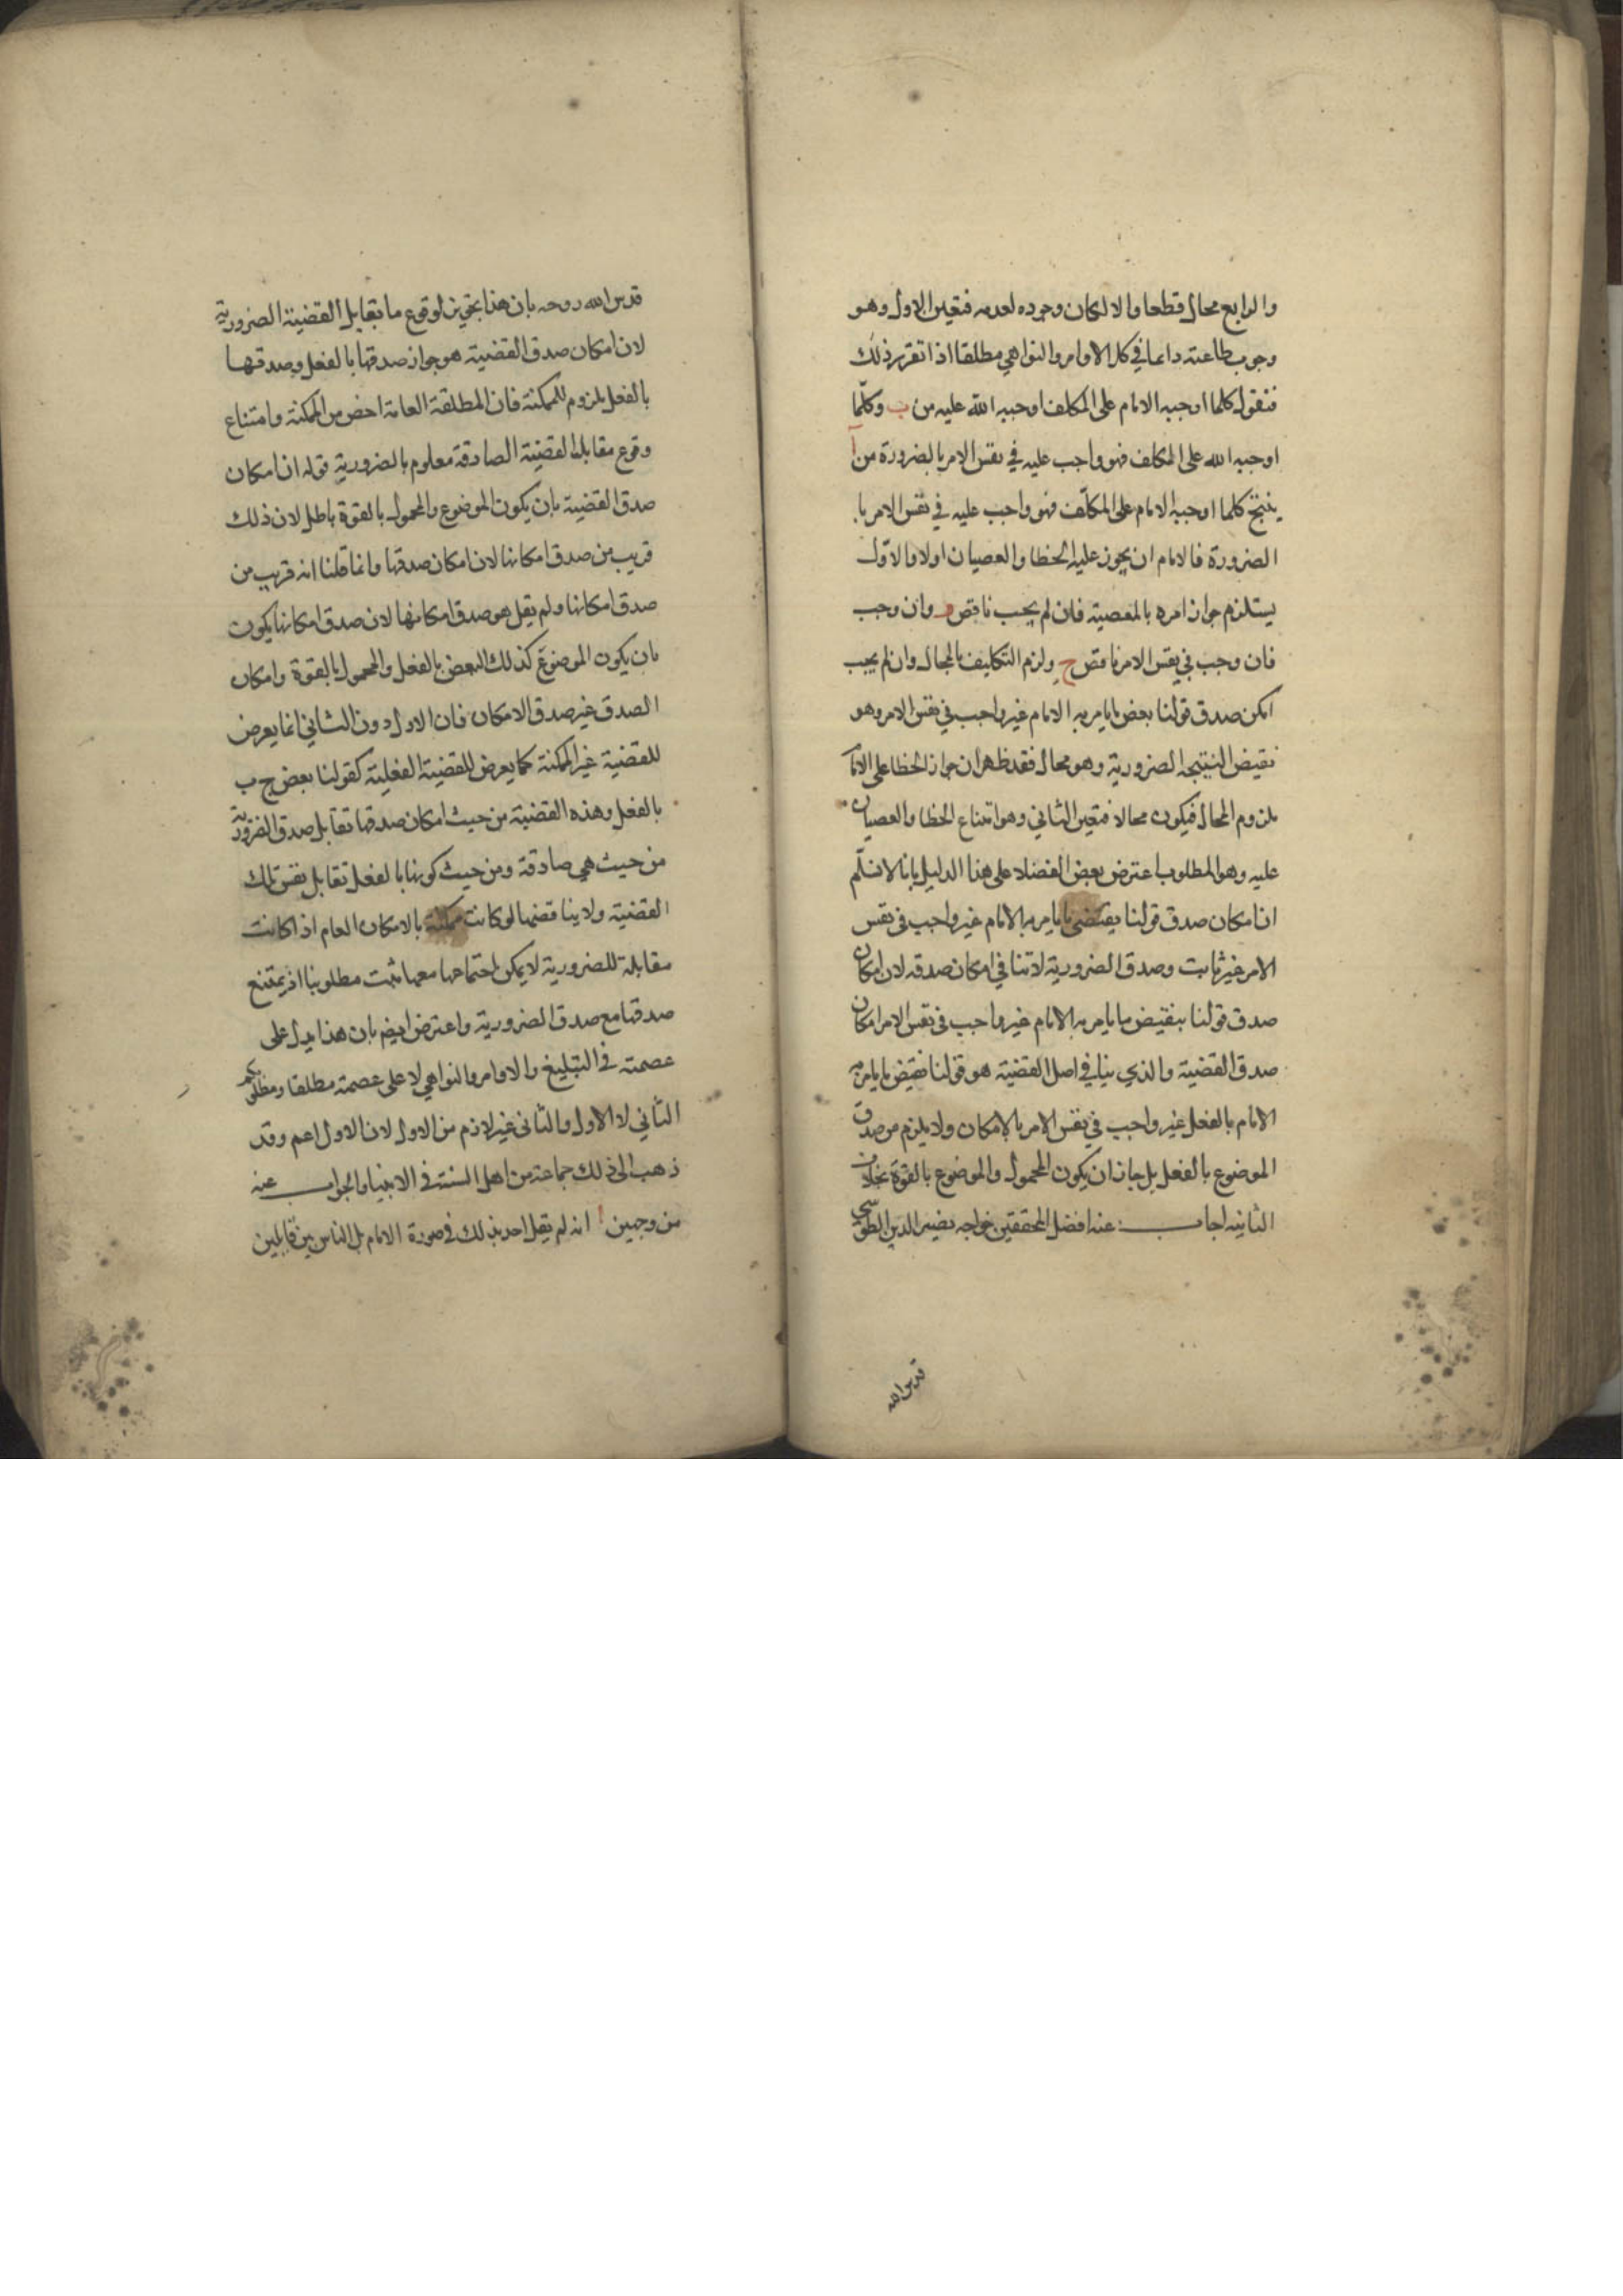 والرابع محال قطعا والا لكان وجوده لعدمه فتعين الاول وهو
وجوب طاعته دائما في كل الاوامر والنواهي مطلقا اذا تقرر ذلك
فنقول كلما اوجبه الامام على المكلف اوجبه الله عليه من ب وكلما
اوجبه الله على المكلف فهو واجب عليه في نفس الامر بالضرورة من ا
ينتج كلما اوجبه الامام على المكلف فهو واجب عليه في نفس الامر با
لضرورة فالامام ان يجوز عليه الخطا والعصيان اولا والاول
يستلزم جواز امره بالمعصية فان لم يجب ناقض و وان وجب
فان وجب في نفس الامر ناقض ح ولزم التكليف بالمحال وان لم يجب
امكن صدق قولنا بعض ما يامر به الامام غير واجب في نفس الامر وهو
نقيض النتيجة الضرورية وهو محال فقد ظهر ان جواز الخطا على الامام
ملزوم المحال فيكون محالا فتعين الثاني وهو امتناع الخطا والعصيان
عليه وهو المطلوب اعترض بعض الفضلا على هذا الدليل بانا لا نسلم
ان امكان صدق قولنا بعض ما يامر به الامام غير واجب في نفس
الامر غير ثابت وصدق الضرورية لا تنافي امكان صدقه لان امكان
صدق قولنا بنقيض ما يامر به الامام غير واجب في نفس الامر امكان
صدق القضية والذي ينافي اصل القضية هو قولنا نقيض ما يامر به
الامام بالفعل غير واجب في نفس الامر بالامكان ولا يلزم من صدق
الموضوع بالفعل بل جاز ان يكون المحمول والموضوع بالقوة بخلاف
الثانية اجاب عنه افضل المحققين خواجه نصير الدين الطوسي
قدس الله
قدس الله روحه بان هذا تجويز لوقوع ما يقابل القضية الضرورية
لان امكان صدق القضية هو جواز صدقها بالفعل وصدقها
بالفعل ملزوم للممكنة فان المطلقة العامة اخص من الممكنة وامتناع
وقوع مقابل القضية الصادقة معلوم بالضرورية قوله ان امكان
صدق القضية بان يكون الموضوع والمحمول بالقوة باطل لان ذلك
قريب من صدق امكانها لان امكان صدقها وانما قلنا انه قريب من
صدق امكانها ولم يقل هو صدق امكانها لان صدق امكانها يكون
بان يكون الموضوع كذلك البعض بالفعل والمحمول بالقوة وامكان
الصدق غير صدق الامكان فان الاول دون الثاني انما يعرض
للقضية غير الممكنة كما يعرض للقضية الفعلية كقولنا بعض ج ب
بالفعل وهذه القضية من حيث امكان صدقها تقابل صدق الضرورية
من حيث هي صادقة ومن حيث كونها بالفعل تقابل نفس تلك
القضية ولا يناقضها لو كانت ممكنة بالامكان العام اذا كانت
مقابلة للضرورية لا يمكن اجتماعها معها ثبت مطلوبنا اذ يمتنع
صدقها مع صدق الضرورية واعترض ايضا بان هذا يدل على
عصمته في التبليغ والاوامر والنواهي لا على عصمته مطلقا ومطلوبكم
الثاني لا الاول والثاني غير لازم من الاول لان الاول اعم وقد
ذهب الى ذلك جماعة من اهل السنة في الانبيا والجواب عنه
من وجهين ا انه لم يقل احد بذلك في صورة الامام بل الناس بين قايلين